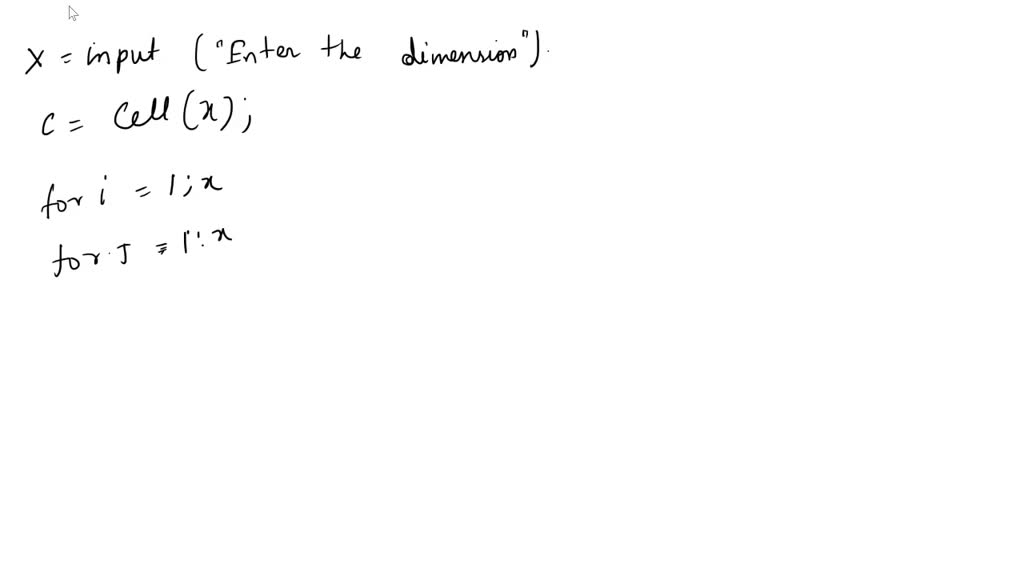 X = input ("Enter the dimension").
C = Cell (x);
for i = 1 ; x
for J = 1 : x